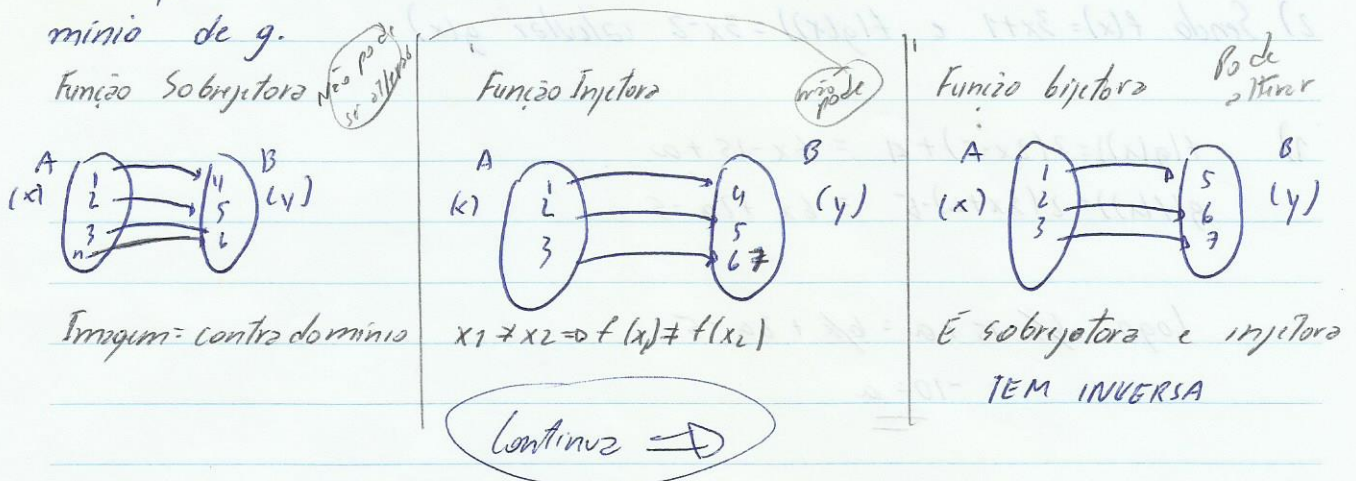 mínio de g.
Função Sobrejetora
Não pode
A
(x)
1
2
3
n
4
5
6
B
(y)
Imagem = contradomínio
Função Injetora
não pode
A
(x)
1
2
3
4
5
6 7
B
(y)
x1 ≠ x2 => f(x1) ≠ f(x2)
Continua
Função bijetora
Pode
alterar
A
(x)
1
2
3
5
6
7
B
(y)
É sobrejetora e injetora
TEM INVERSA